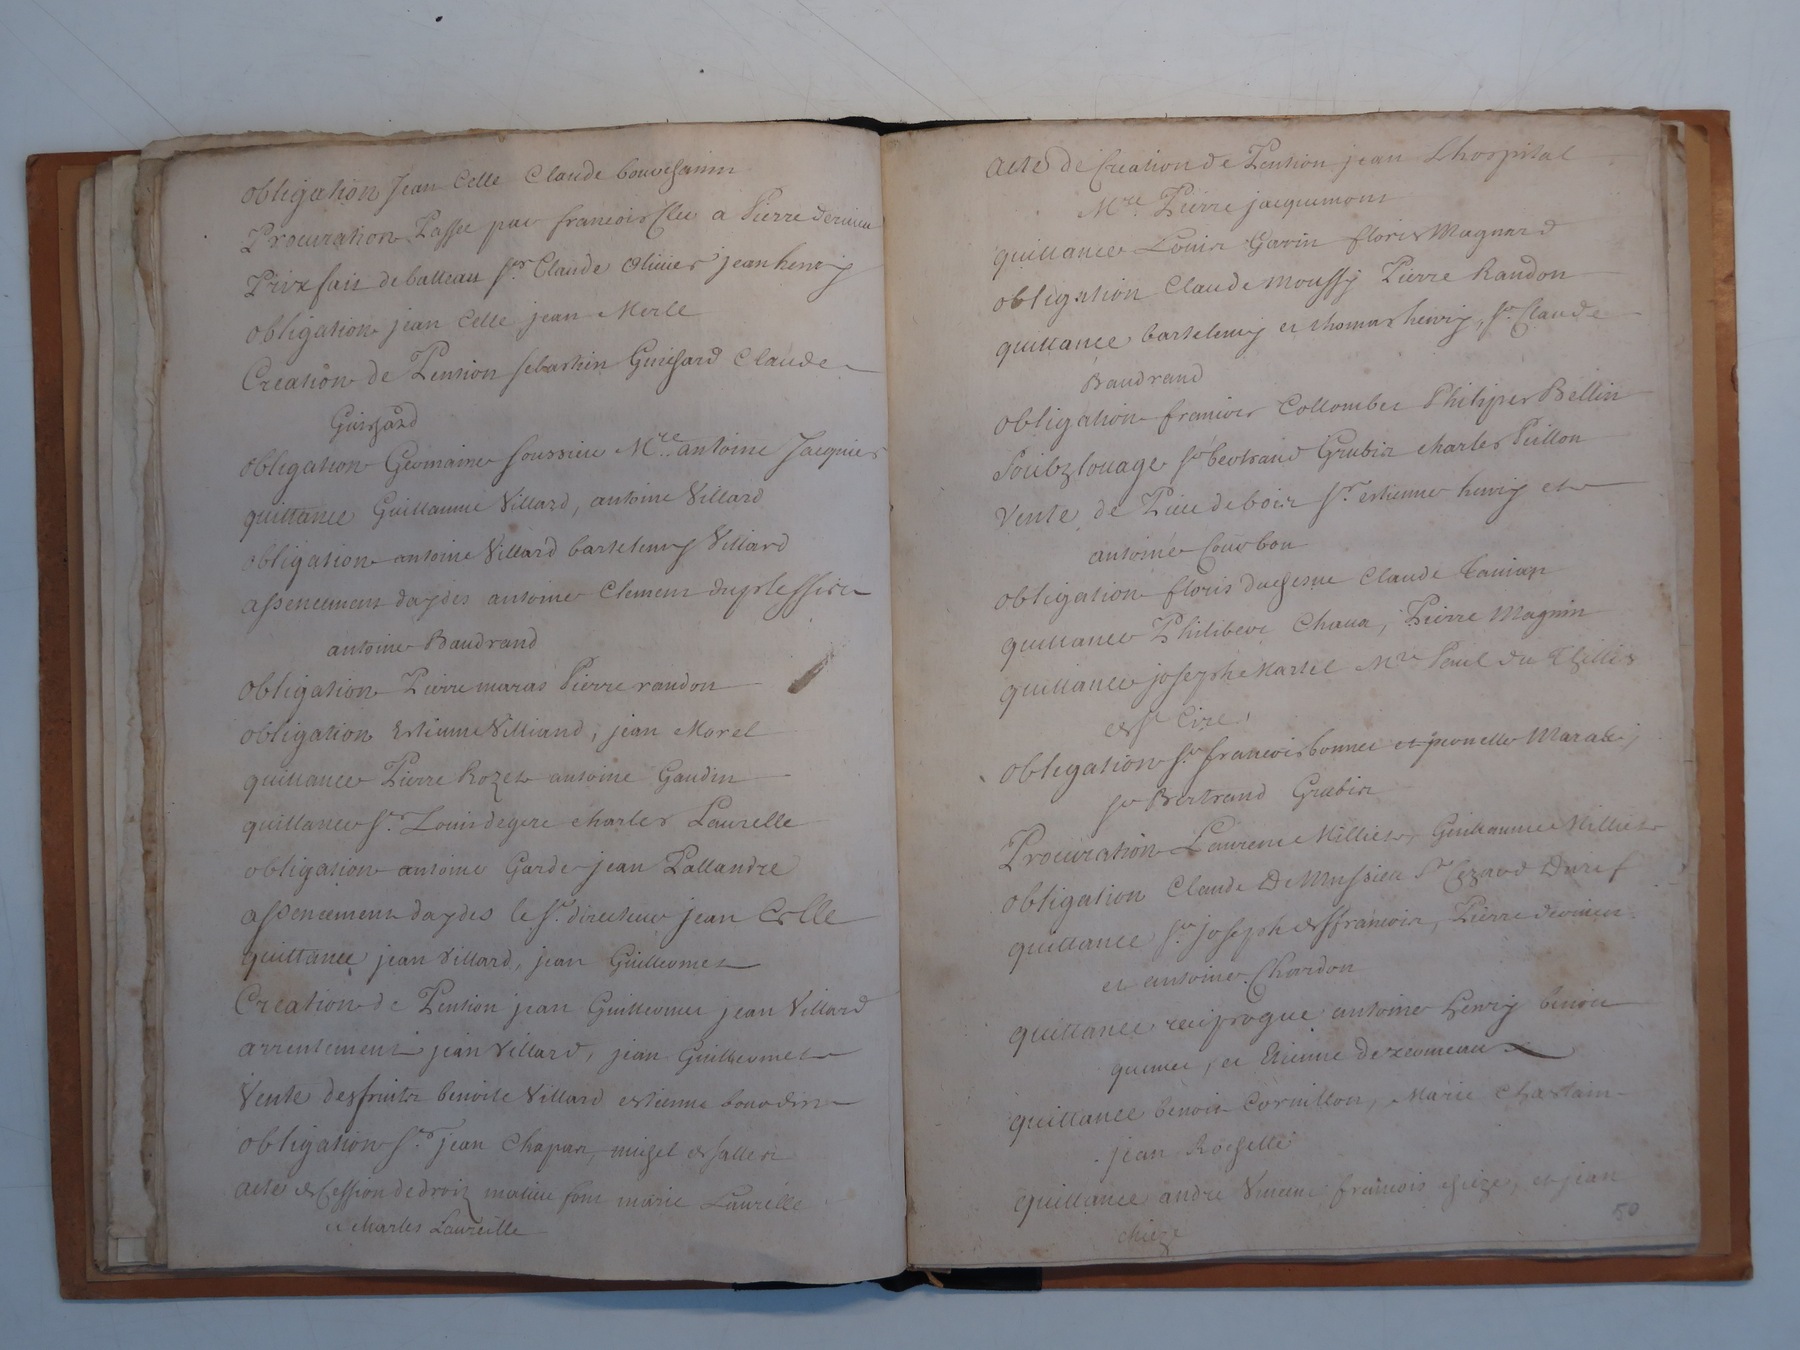 obligation Jean Celle Claude bouchanin
Procuration Passee par francois Clu a Pierre derieu
Prixfait de batteau Sr. Claude Olivier jean henry
obligation jean Celle jean Merle
Creation de Pention sebastien Guichard Claude
Guichard
obligation Germaine soussieu Mre. antoine Jacquier
quittance Guillaume Villard, antoine Villard
obligation antoine Villard bartelemy Villard
assencement daydes antoine Clement duplessieu
antoine Baudrand
obligation Pierre maras Pierre randon
obligation Estienne Villiand, jean Morel
quittance Pierre Rozet antoine Gaudin
quittance Sr. Louis degere charles Laurelle
obligation antoine Garde jean Pallandre
assencement daydes le Sr. directeur jean Celle
quittance jean Villard, jean Guilleomet
Creation de Pention jean Guilleomet jean Villard
arrentement jean Villard, jean Guilleomet
Vente desfruits benoite Villard estienne bourdin
obligation Sr. jean Chapas, michel de salles
acte de Cession de droit matieu font marie Laurelle
et charles Laureille
acte de Creation de Pention jean Lhospital
Mre. Pierre jacquemont
quittance Louis Garin floris Magnard
obligation Claude Moussy Pierre Randon
quittance bartelemy et thomas henry, Sr. Claude
Baudrand
obligation francois Collombet Philiper Bellin
Soubzlouage Sr bertrand Grubis charles Peillon
Vente de Piece de bois Sr. estienne henry et
antoine Courbon
obligation floris duchesne Claude
quittance Philibert Chaua, Pierre Magnin
quittance josephe Martel Mre Paul du Theillis
de St Cire,
obligation Sr. francois bonnet et peronelle Maras,
Sr Bertrand Grubis
Procuration Laurent Milliet, Guillaume Milliet
obligation Claude De Mussieu Sr Cezard Duref
quittance Sr. joseph desfrancois, Pierre derieu
et antoine Chardon
quittance reciproque antoine henry benoit
et Etienne
quittance benoit Cornillon, Marie Chastain
jean Rochelle
quittance andre Vincent francois chieze, et jean
chieze
50